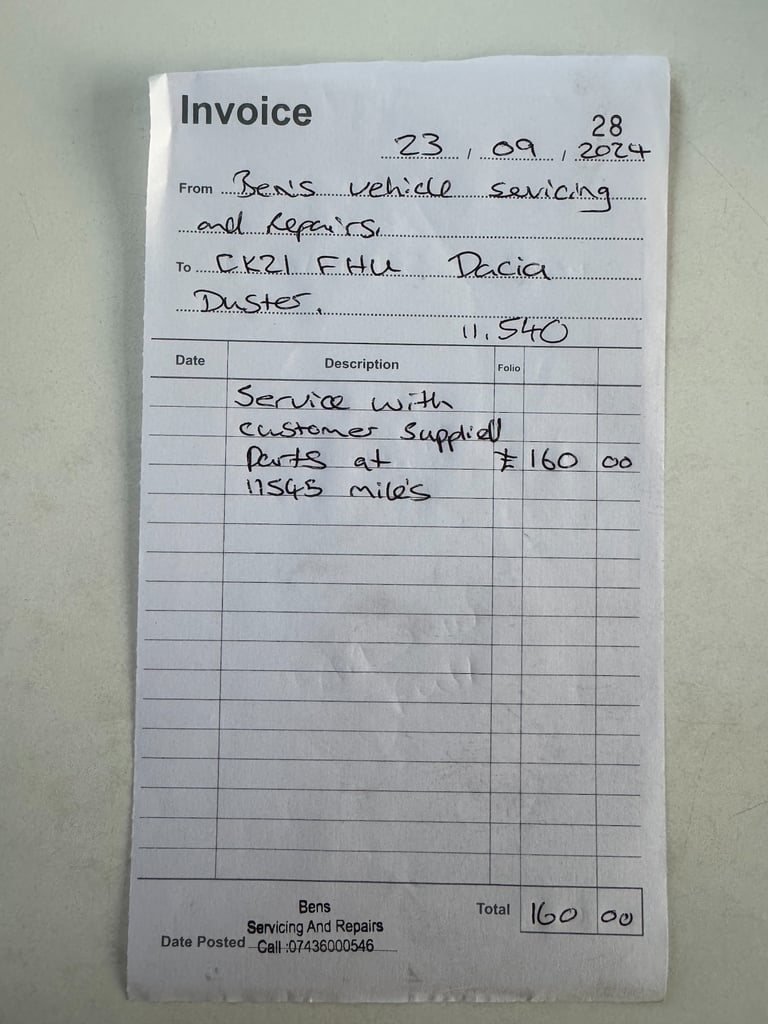 Invoice
28
23 / 09 / 2024
From Ben's vehicle servicing
and Repairs.
To CK21 FHU Dacia
Duster.
11,540
Date Description Folio
Service with
customer supplied
Parts at £ 160 00
11545 mile's
Total 160 00
Bens
Servicing And Repairs
Date Posted Call :07436000546